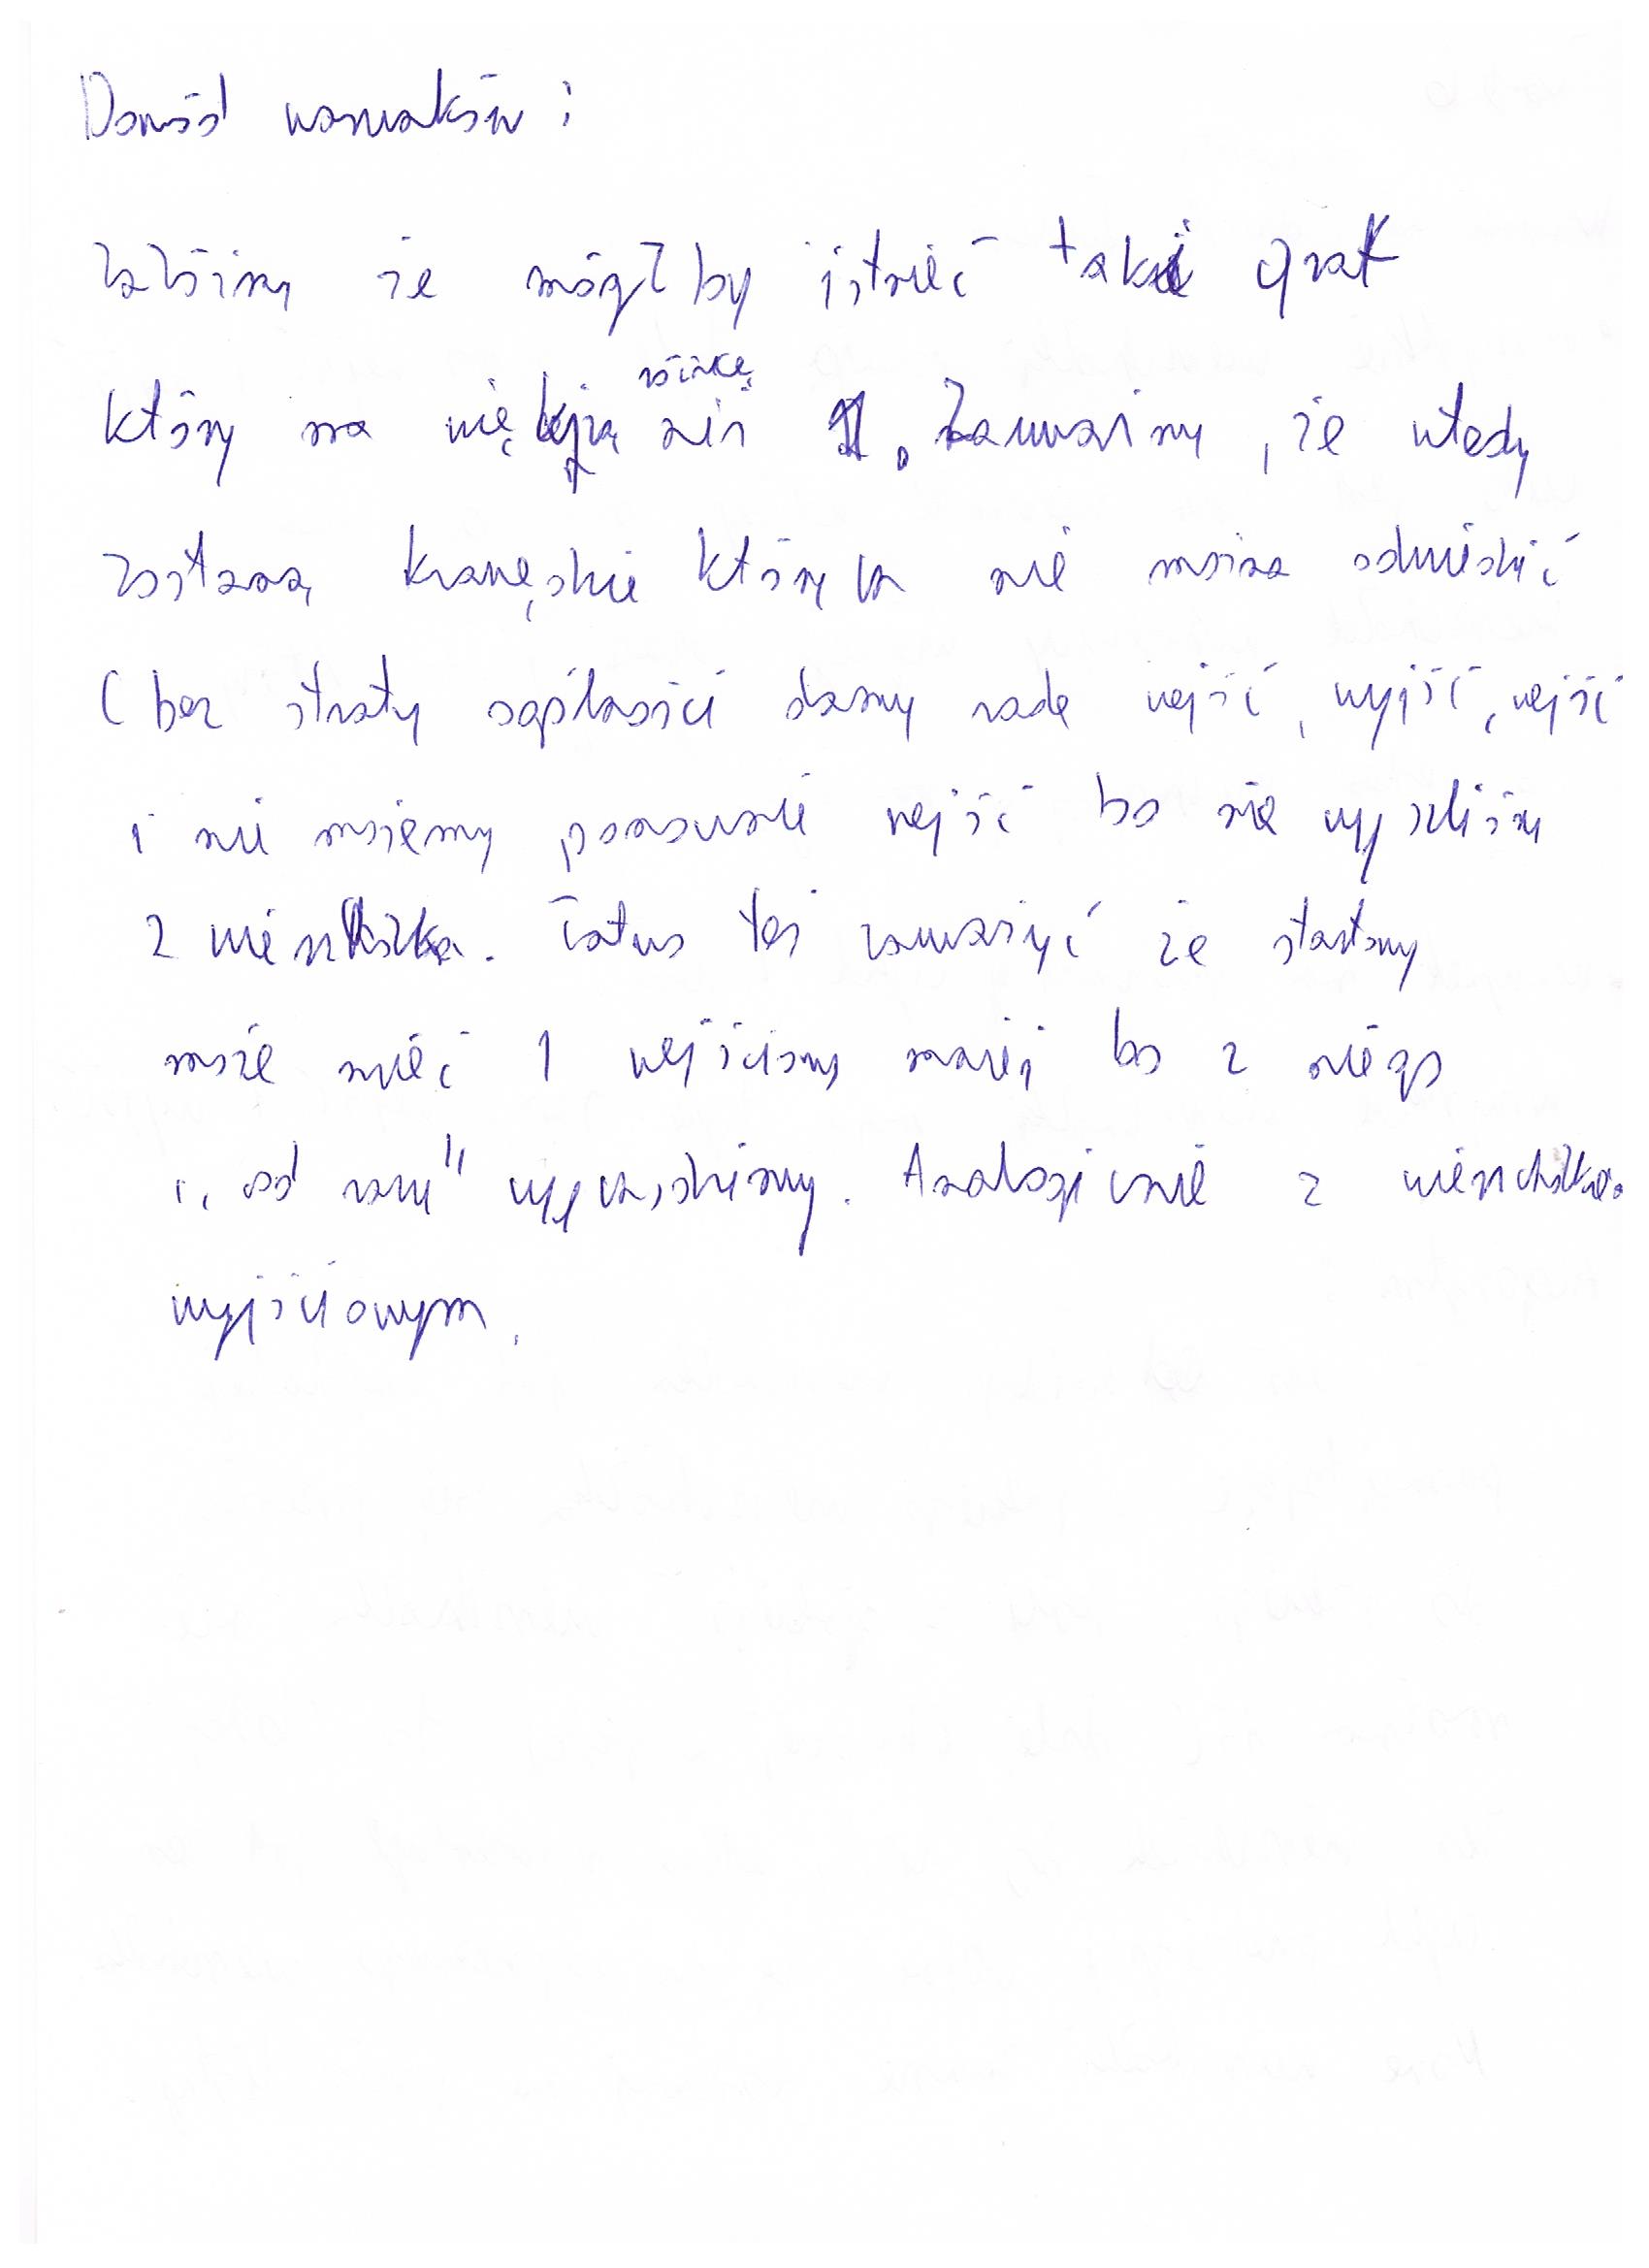 Dowód warunków:
Załóżmy że mógłby istnieć taki graf
który ma większą różnicę niż 1. Zauważmy, że wtedy
zostaną krawędzie których nie można odwiedzić
(bez straty ogólności damy rade wejść, wyjść, wejść
i nie możemy ponownie wejść bo nie wyszliśmy
z wierzchołka. Łatwo też zauważyć że startowy
może mieć 1 wejściowy mniej bo z niego
"od razu" wychodzimy. Analogicznie z wierzchołkiem
wyjściowym.